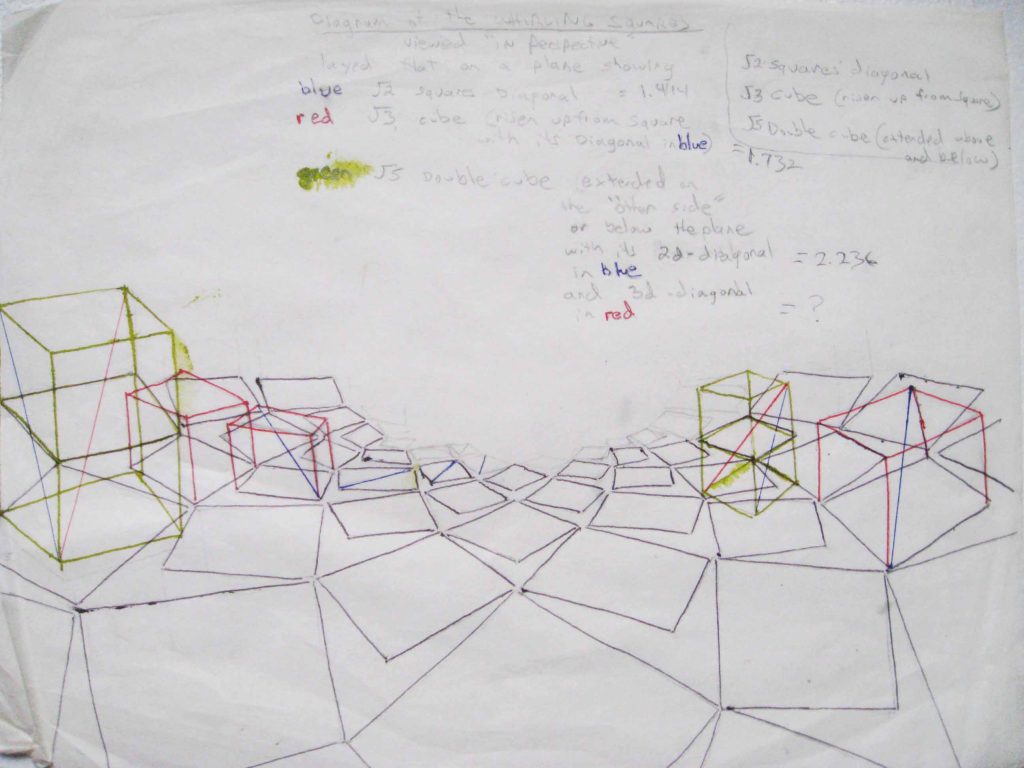 Diagram of the WHIRLING SQUARES
viewed "in perspective"
layed flat on a plane showing
blue √2 squares Diagonal = 1.414
red √3 cube (risen up from square
with its Diagonal in blue) = 1.732
green √5 Double cube extended on
the "other side"
or below the plane
with its 2d-diagonal = 2.236
in blue
and 3d-diagonal
in red = ?
√2 squares' diagonal
√3 cube (risen up from square)
√5 Double cube (extended above
and below)